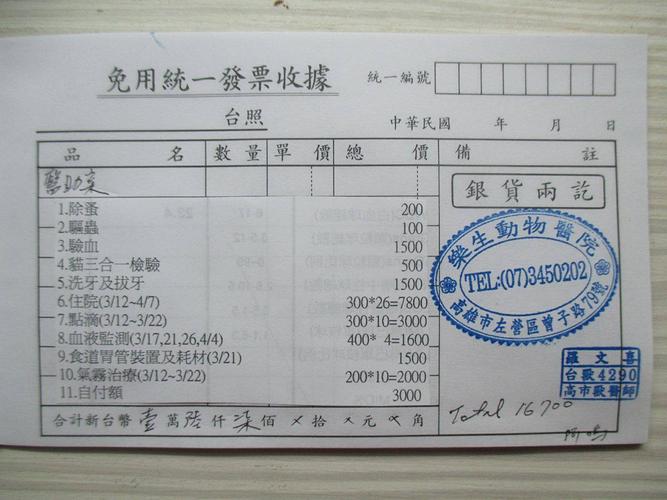 免用統一發票收據
統一編號
台照
中華民國 年 月 日
品名 數量 單價 總價 備註
銀貨兩訖
1.除蚤 200
2.驅蟲 100
3.驗血 1500
4.貓三合一檢驗 500
5.洗牙及拔牙 1500
6.住院(3/12~4/7) 300*26=7800
7.點滴(3/12~3/22) 300*10=3000
8.血液監測(3/17,21,26,4/4) 400* 4=1600
9.食道胃管裝置及耗材(3/21) 1500
10.氣霧治療(3/12~3/22) 200*10=2000
11.自付額 3000
樂生動物醫院
TEL:(07)3450202
高雄市左營區曾子路79號
羅文喜
台獸4290
高市獸醫師
Total 16700
合計新台幣壹萬陸仟柒佰X拾X元X角